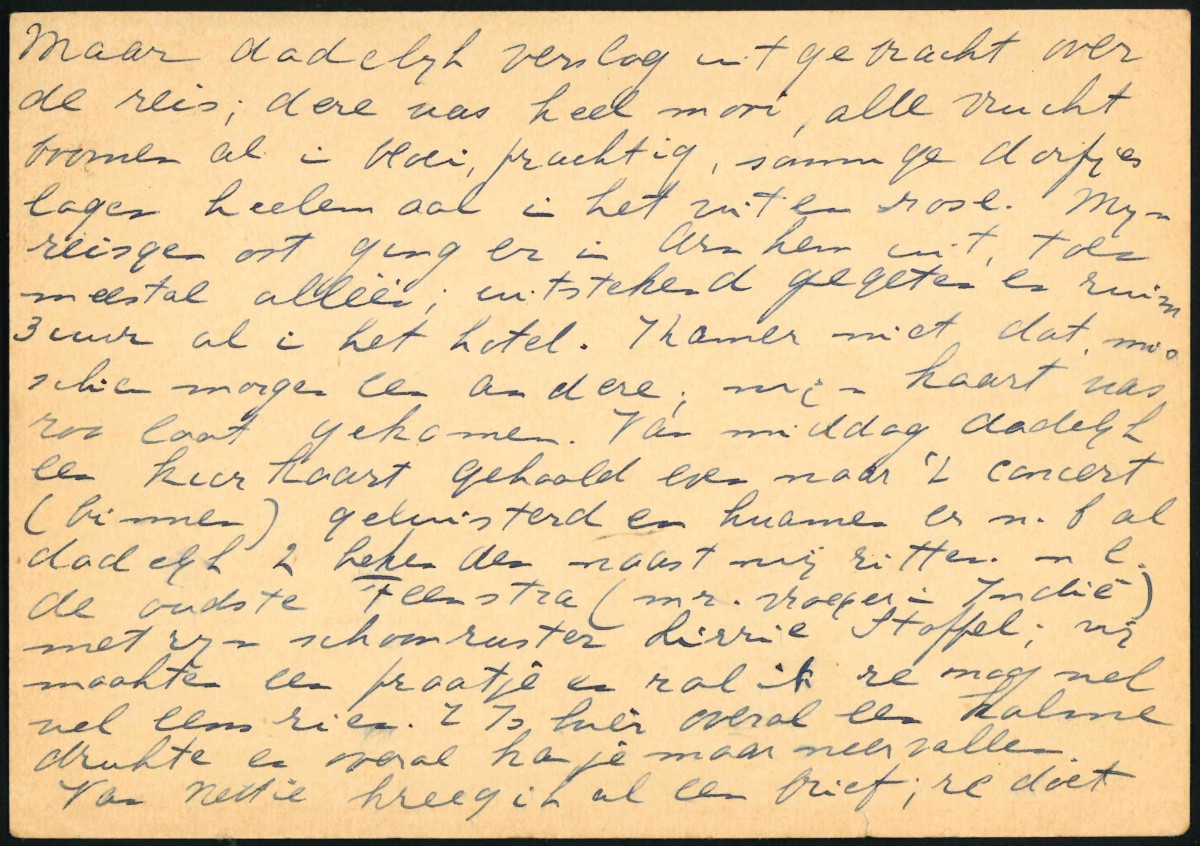 Maar dadelijk verslag uitgebracht over
de reis; deze was heel mooi, alle vrucht
boomen al in bloei, prachtig, sommige dorpjes
lagen heelemaal in het wit en rose. Mijn
reisgenoot ging er in Arnhem uit, toen
meestal alleen; uitstekend gegeten en ruim
3 uur al in het hotel. Kamer niet dat, mis
schien morgen een andere; mijn kaart was
zoo laat gekomen. Van middag dadelijk
een kuurkaart gehaald even naar 't concert
(binnen) geluisterd en kwamen er n.b al
dadelijk 2 bekenden naast mij zitten. n l.
de oudste Feenstra (mr. vroeger in Indië)
met zijn schoonzuster Lizzie Stoffel; wij
maakten een praatje en zal ik ze nog wel
wel eens zien. 't Is hier overal een kalme
drukte en overal kan je maar neervallen
Van Nettie kreeg ik al een brief; ze doet